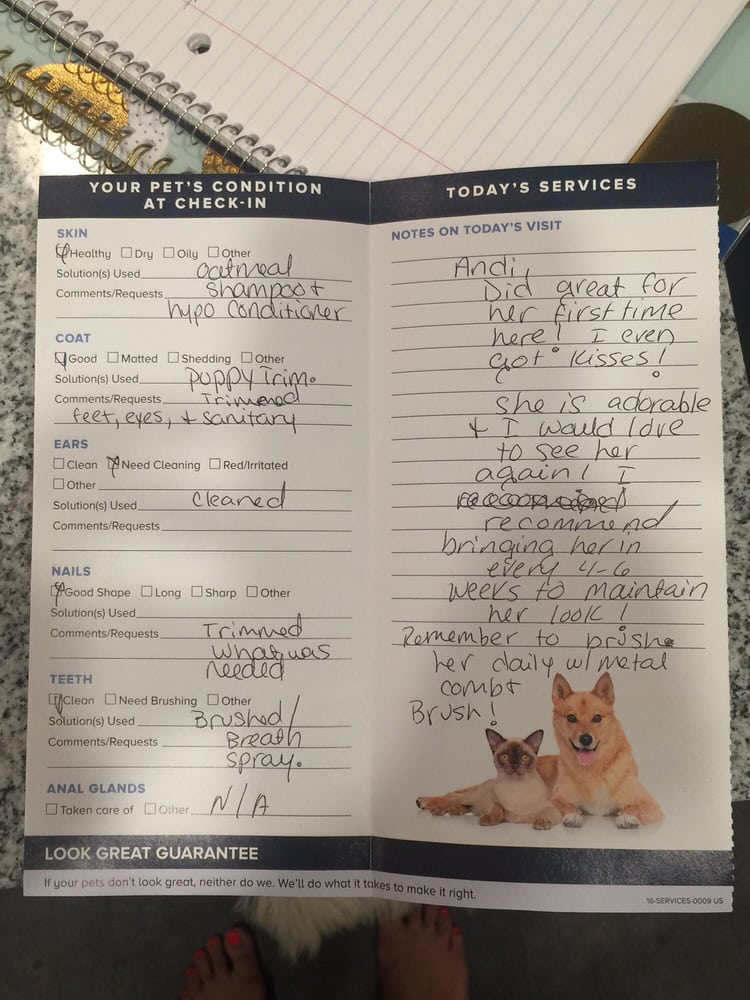 YOUR PET'S CONDITION
AT CHECK-IN
SKIN
Healthy Dry Oily Other
Solution(s) Used Oatmeal
Comments/Requests Shampoo +
hypo Conditioner
COAT
Good Matted Shedding Other
Solution(s) Used puppy Trim.
Comments/Requests Trimmed
feet, eyes, + sanitary
EARS
Clean Need Cleaning Red/Irritated
Other
Solution(s) Used Cleaned
Comments/Requests
NAILS
Good Shape Long Sharp Other
Solution(s) Used
Comments/Requests Trimmed
what was
needed
TEETH
Clean Need Brushing Other
Solution(s) Used Brushed/
Comments/Requests Breath
spray.
ANAL GLANDS
Taken care of Other N/A
LOOK GREAT GUARANTEE
If your pets don't look great, neither do we. We'll do what it takes to make it right.
TODAY'S SERVICES
NOTES ON TODAY'S VISIT
Andi,
Did great for
her first time
here! I even
got kisses!
She is adorable
+ I would love
to see her
again! I
recommend
bringing her in
every 4-6
weeks to maintain
her look!
Remember to
her daily w/ metal
comb +
Brush!
16-SERVICES-0009 US